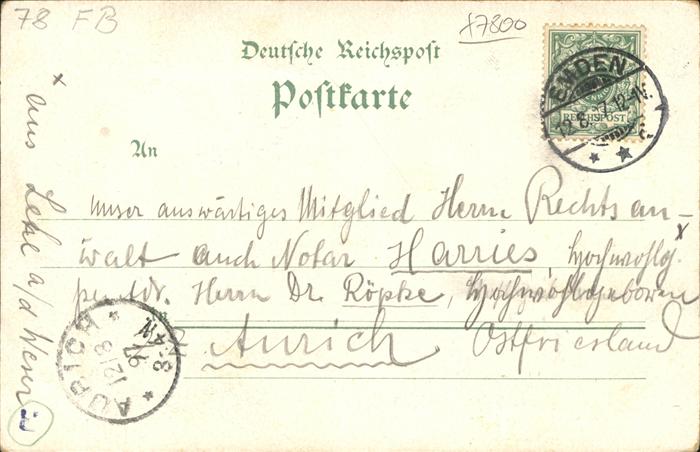 78 FB
17800
Deutsche Reichspost
Postkarte
An
EMDEN
12 8. 97. 12-1N.
REICHSPOST
unser auswärtiges Mitglied Herrn Rechtsan-
walt auch Notar Harries hochwohlg.
per Adr. Herrn Dr. Röpke, hochwohlgeboren
Aurich Ostfriesland
x aus Lehe a/d Weser
AURICH
12 8
97
3-4N